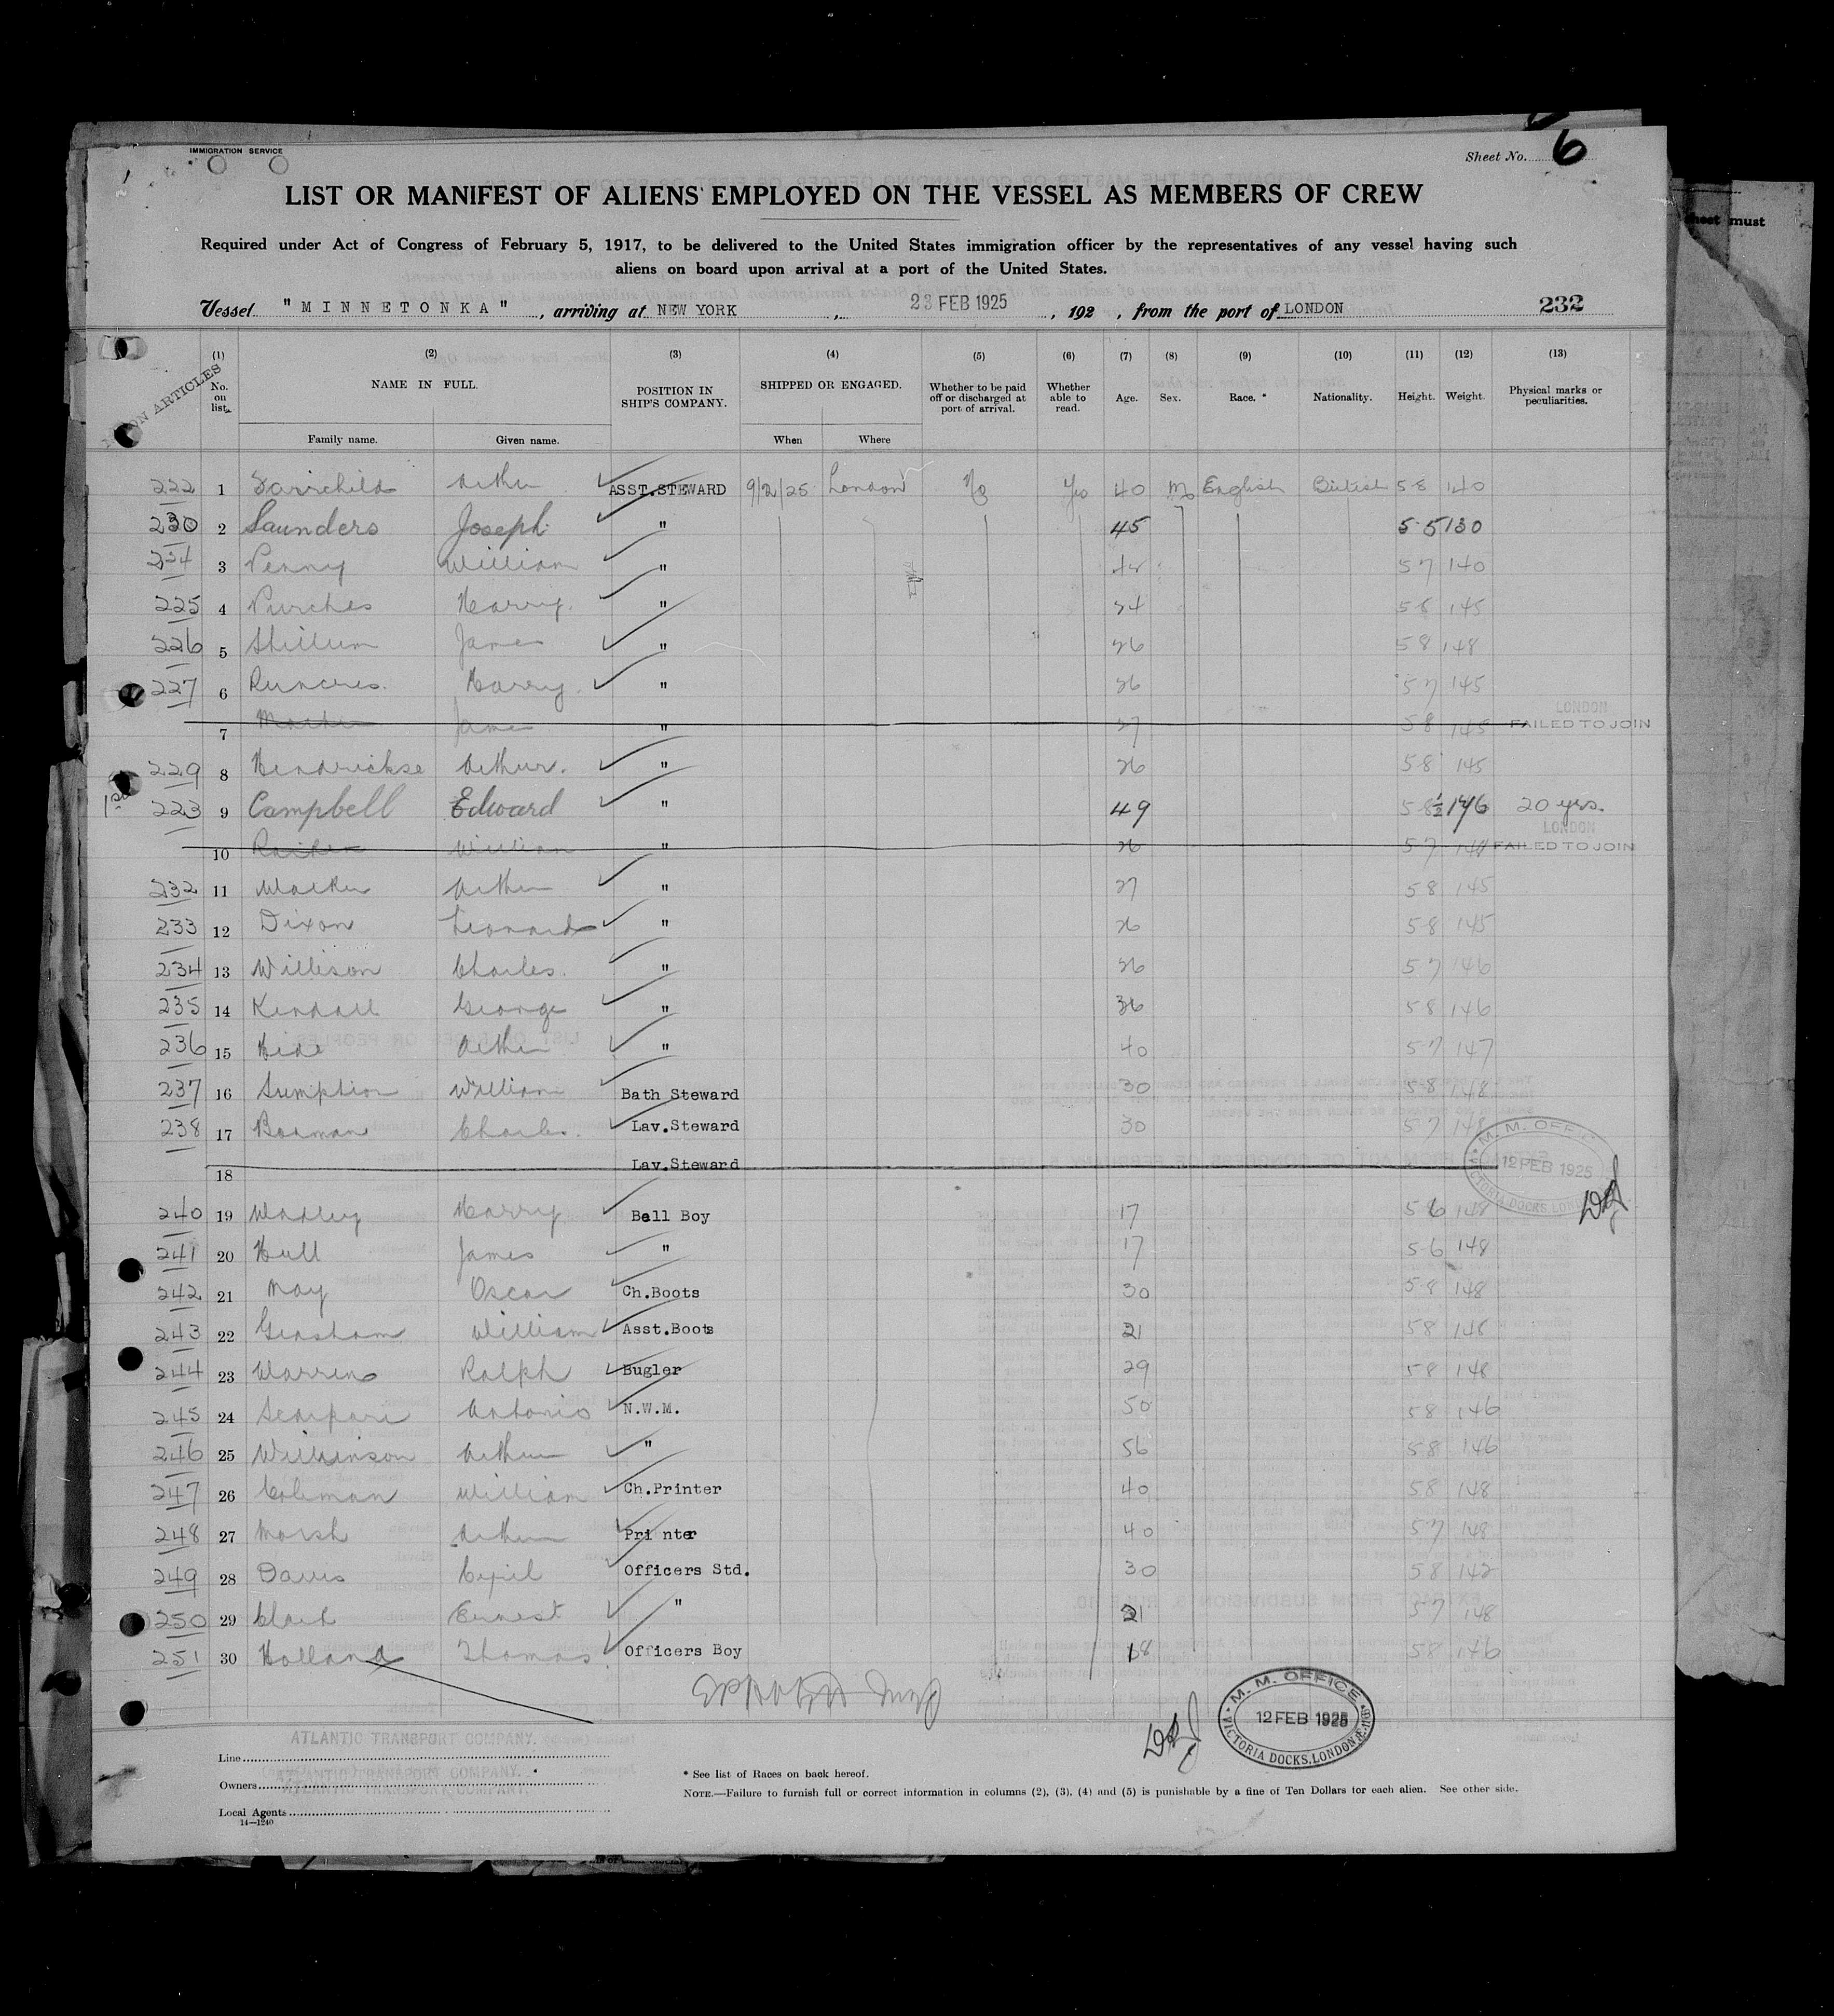 IMMIGRATION SERVICE
Sheet No. 6
LIST OR MANIFEST OF ALIENS EMPLOYED ON THE VESSEL AS MEMBERS OF CREW
Required under Act of Congress of February 5, 1917, to be delivered to the United States immigration officer by the representatives of any vessel having such
aliens on board upon arrival at a port of the United States.
Vessel "MINNETONKA", arriving at NEW YORK, 23 FEB 1925, 192 , from the port of LONDON 232
ARTICLES
(1) (2) (3) (4) (5) (6) (7) (8) (9) (10) (11) (12) (13)
No. on list. NAME IN FULL. POSITION IN SHIP'S COMPANY. SHIPPED OR ENGAGED. Whether to be paid off or discharged at port of arrival. Whether able to read. Age. Sex. Race. * Nationality. Height. Weight. Physical marks or peculiarities.
Family name. Given name. When Where
222 1 Fairchild Arthur ASST.STEWARD 9/2/25 London No Yes 40 M English British 5 8 140
230 2 Saunders Joseph " 45 5 5 130
224 3 Penny William " 5 7 140
225 4 Purches Harry " 24 5 8 145
226 5 James " 26 5 8 148
227 6 Harry " 26 5 7 145
7 James " 27 5 8 145 LONDON FAILED TO JOIN
229 8 Hendrickse Arthur. " 26 5 8 145
1st 223 9 Campbell Edward " 49 5 8½ 146 20 yrs.
10 William " 26 5 7 LONDON FAILED TO JOIN
232 11 Walker Arthur " 27 5 8 145
233 12 Dixon Leonard " 26 5 8 145
234 13 Willison Charles. " 26 5 7 146
235 14 Kendall George " 36 5 8 146
236 15 Hide Arthur " 40 5 7 147
237 16 Sumption William Bath Steward 30 5 8 148
238 17 Charles. Lav.Steward 30 5 7 148
18 Lav.Steward
240 19 Wadley Harry Bell Boy 17 5 6 148
241 20 Hull James " 17 5 6 148
242 21 May Oscar Ch.Boots 30 5 8 148
243 22 William Asst.Boots 21 5 8 146
244 23 Warren Ralph Bugler 29 5 8 148
245 24 Antonio N.W.M. 50 5 8 146
246 25 Wilkinson Arthur " 56 5 8 146
247 26 Coleman William Ch.Printer 40 5 8 148
248 27 Marsh Arthur Printer 40 5 7 148
249 28 Davis Cyril Officers Std. 30 5 8 142
250 29 Clark Ernest " 21 5 7 148
251 30 Holland Thomas Officers Boy 18 5 8 146
M. M. OFFICE
12 FEB 1925
VICTORIA DOCKS, LONDON
M. M. OFFICE
12 FEB 1925
VICTORIA DOCKS, LONDON
ATLANTIC TRANSPORT COMPANY.
Line
ATLANTIC TRANSPORT COMPANY.
Owners
ATLANTIC TRANSPORT COMPANY.
Local Agents
14—1240
* See list of Races on back hereof.
NOTE.—Failure to furnish full or correct information in columns (2), (3), (4) and (5) is punishable by a fine of Ten Dollars for each alien. See other side.
sheet must